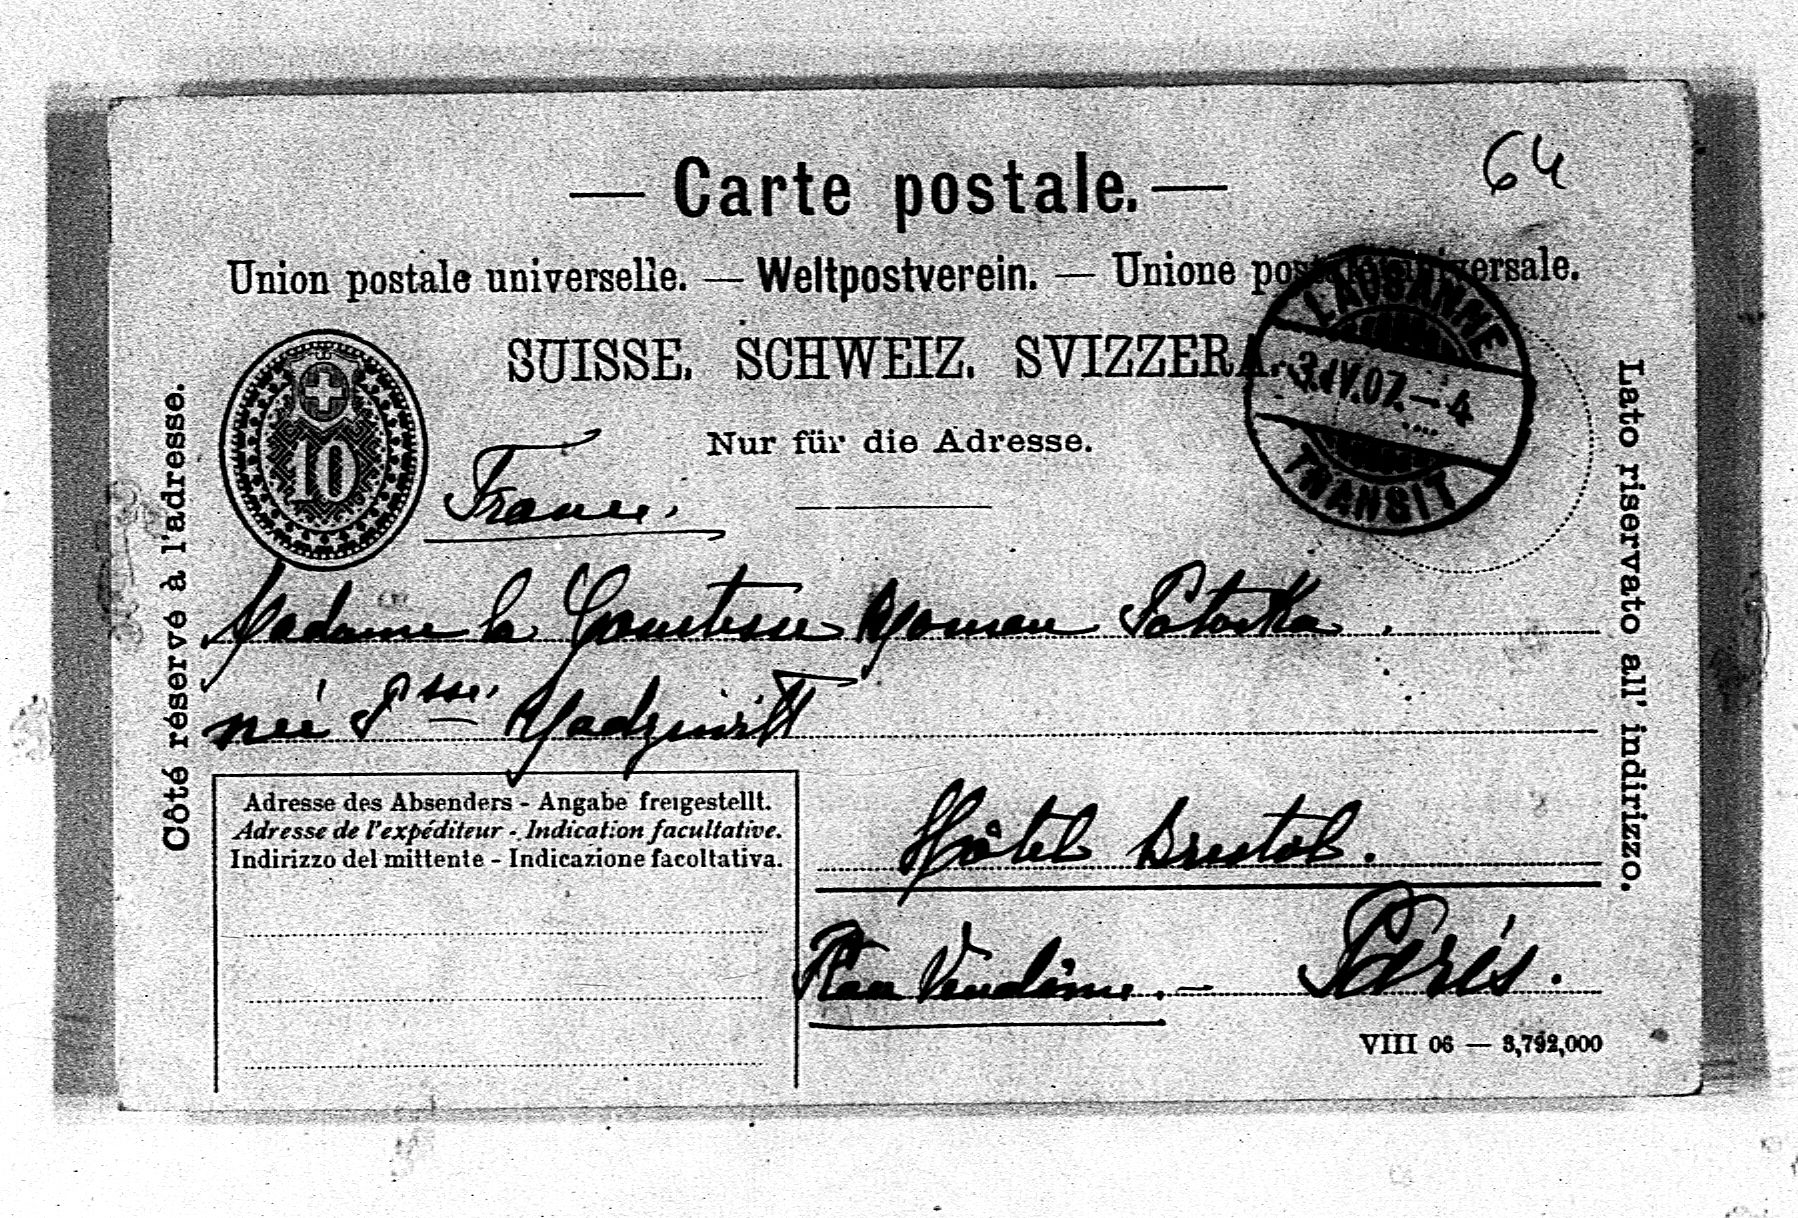 64
— Carte postale. —
Union postale universelle. — Weltpostverein. — Unione postale universale.
SUISSE. SCHWEIZ. SVIZZERA.
Nur für die Adresse.
10
LAUSANNE
-3.IV.07.-4
TRANSIT
France.
Côté réservé à l'adresse.
Lato riservato all' indirizzo.
Madame la Comtesse Roman Potocka.
née Psse. Radziwill
Adresse des Absenders - Angabe freigestellt.
Adresse de l'expéditeur - Indication facultative.
Indirizzo del mittente - Indicazione facoltativa.
Hôtel Bristol.
Place Vendôme. — Paris.
VIII 06 — 3,792,000